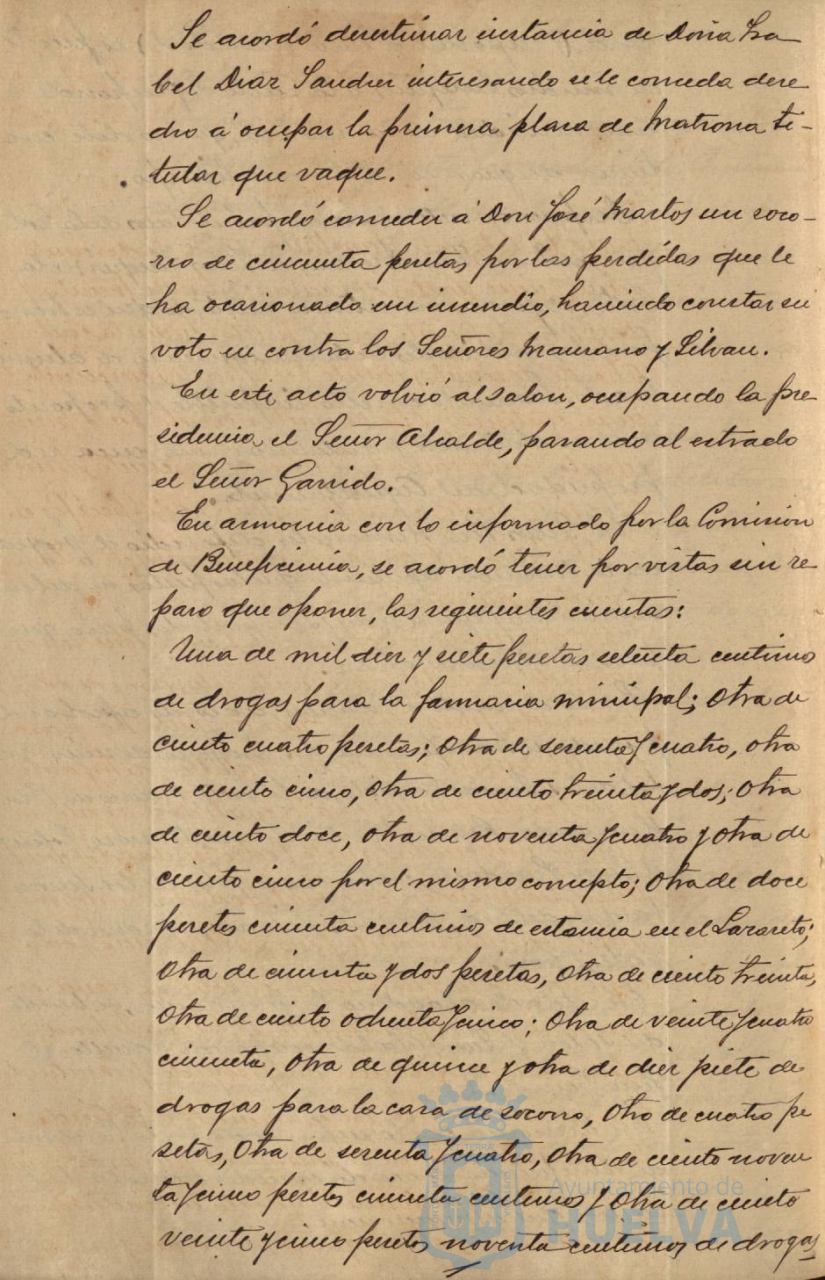 Se acordó desestimar instancia de Doña Isa
bel Diaz Sander interesando se le conceda dere
cho á ocupar la primera plaza de Matrona ti-
tular que vaque.
Se acordó conceder á Don José Martos un soco-
rro de cincuenta pesetas por las perdidas que le
ha ocasionado un incendio, haciendo constar su
voto en contra los Señores Manzano y Silvan.
En este acto volvió al salon, ocupando la pre
sidencia el Señor Alcalde, pasando al estrado
el Señor Garrido.
En armonia con lo informado por la Comision
de Beneficencia, se acordó tener por vistas sin re
paro que oponer, las siguientes cuentas:
Una de mil diez y siete pesetas setenta centimos
de drogas para la farmacia municipal; Otra de
ciento cuatro pesetas; Otra de sesenta y cuatro, otra
de ciento cinco, Otra de ciento treinta y dos; Otra
de ciento doce, Otra de noventa y cuatro y Otra de
ciento cinco por el mismo concepto; Otra de doce
pesetas cincuenta centimos de estancia en el Lazareto;
Otra de cincuenta y dos pesetas, Otra de ciento treinta,
Otra de ciento ochenta y cinco; Otra de veinte y cuatro
cincuenta, Otra de quince y otra de diez y siete de
drogas para la casa de socorro, Otro de cuatro pe
setas, Otra de sesenta y cuatro, Otra de ciento noven
ta y cinco pesetas cincuenta centimos y Otra de ciento
veinte y cinco pesetas noventa centimos de drogas
Ayuntamiento de
HUELVA